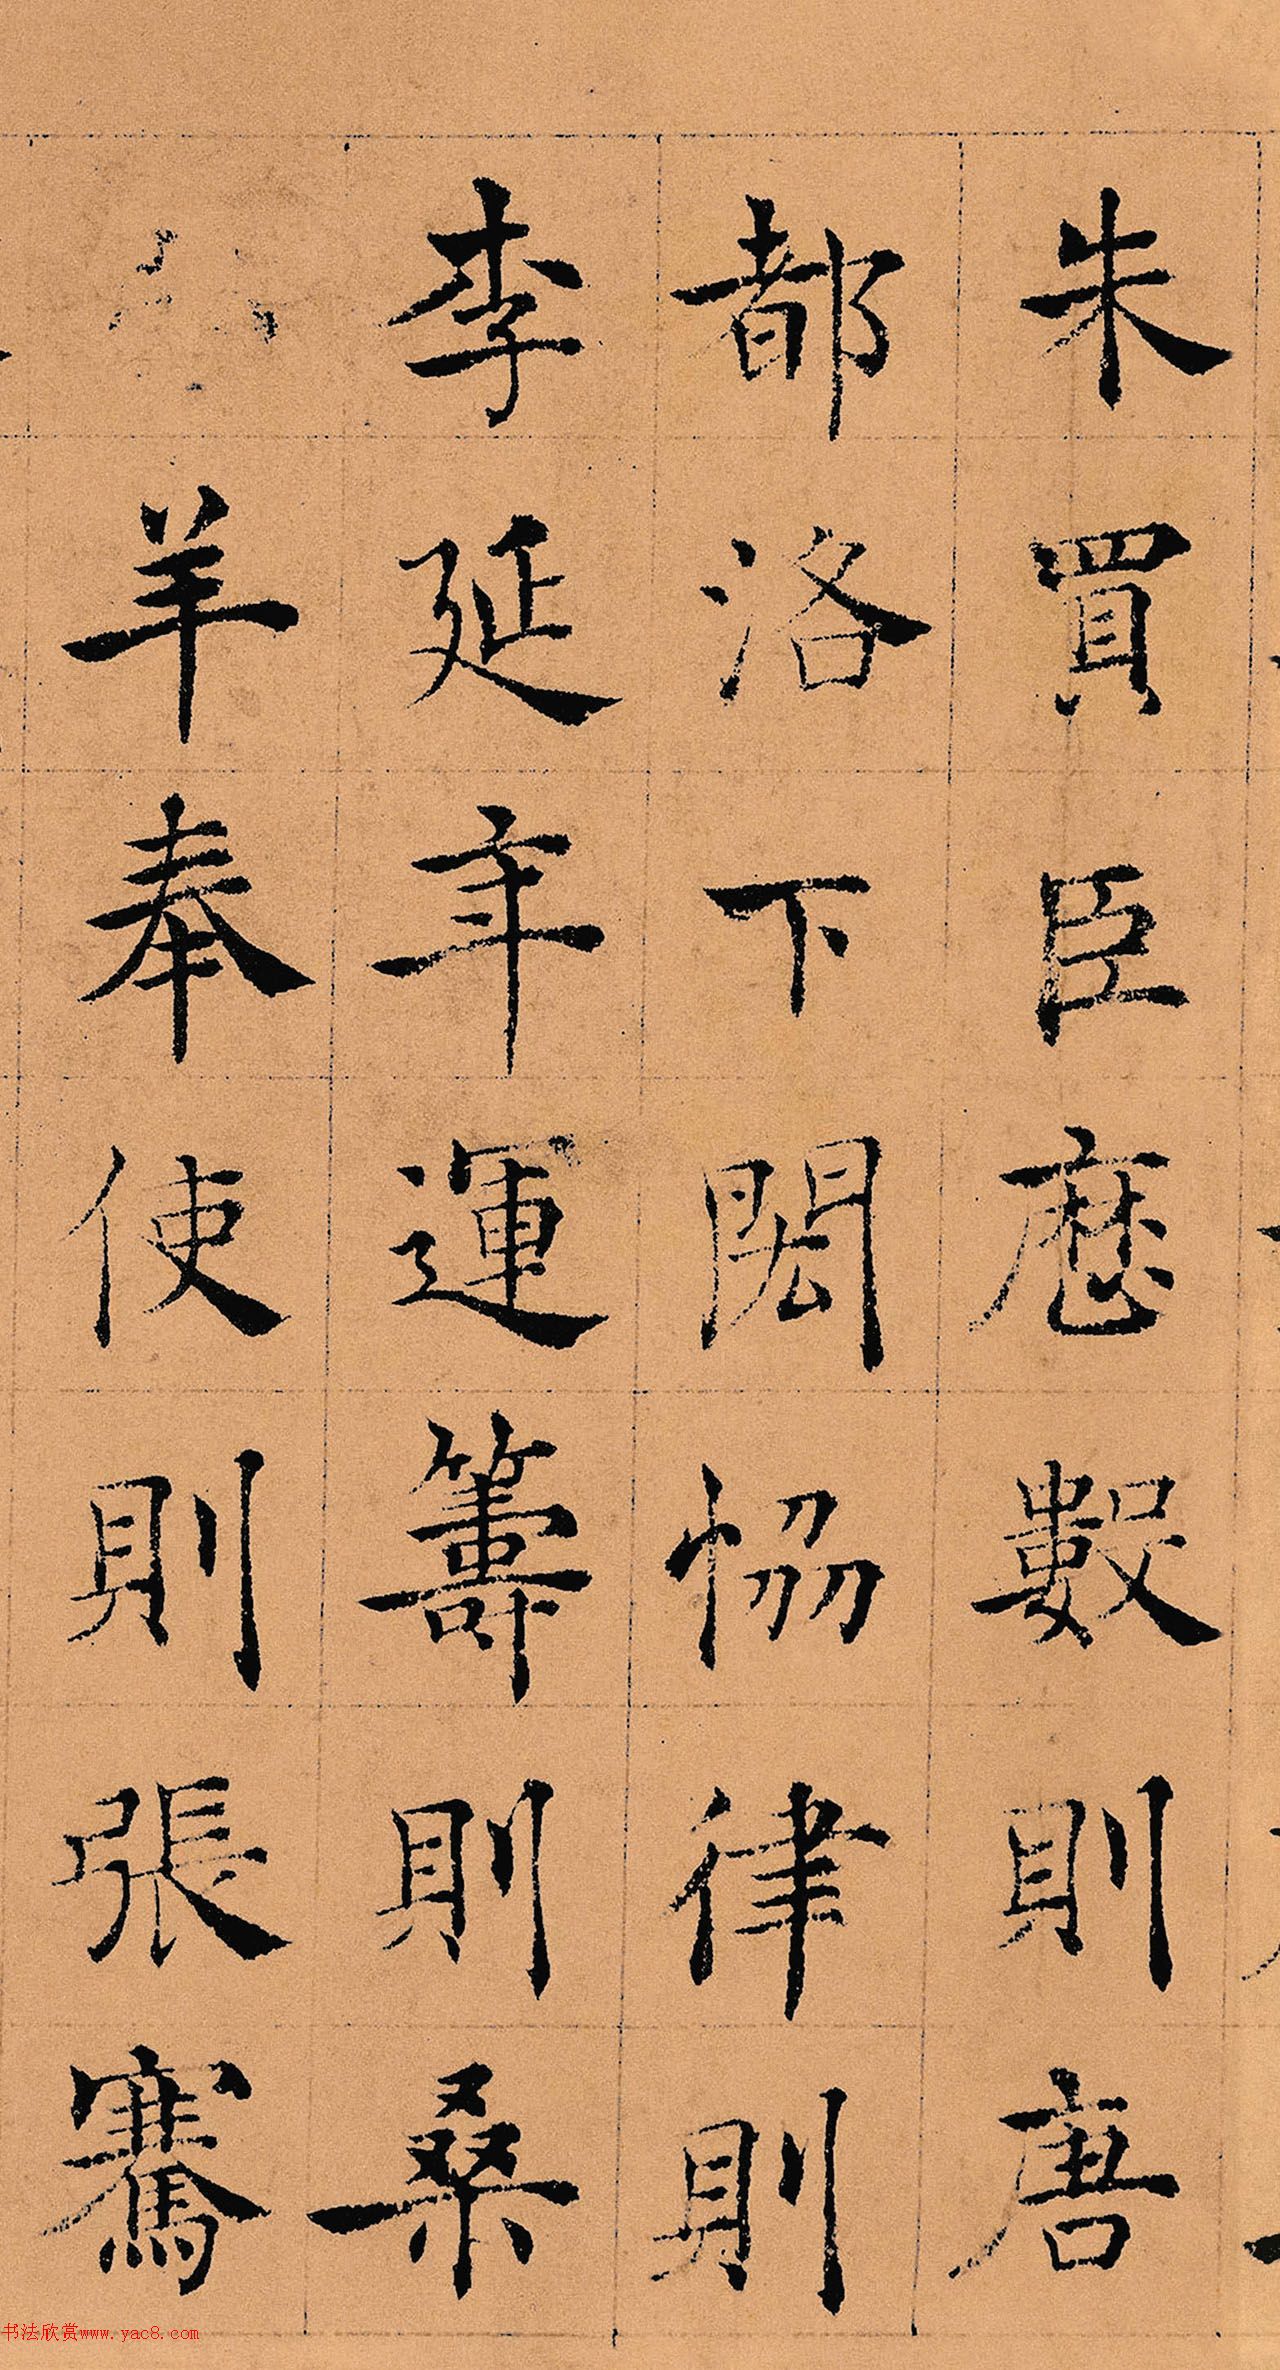 朱買臣歷數則唐
都洛下閎恊律則
李延年運籌則桑
羊奉使則張騫
书法欣赏www.yac8.com